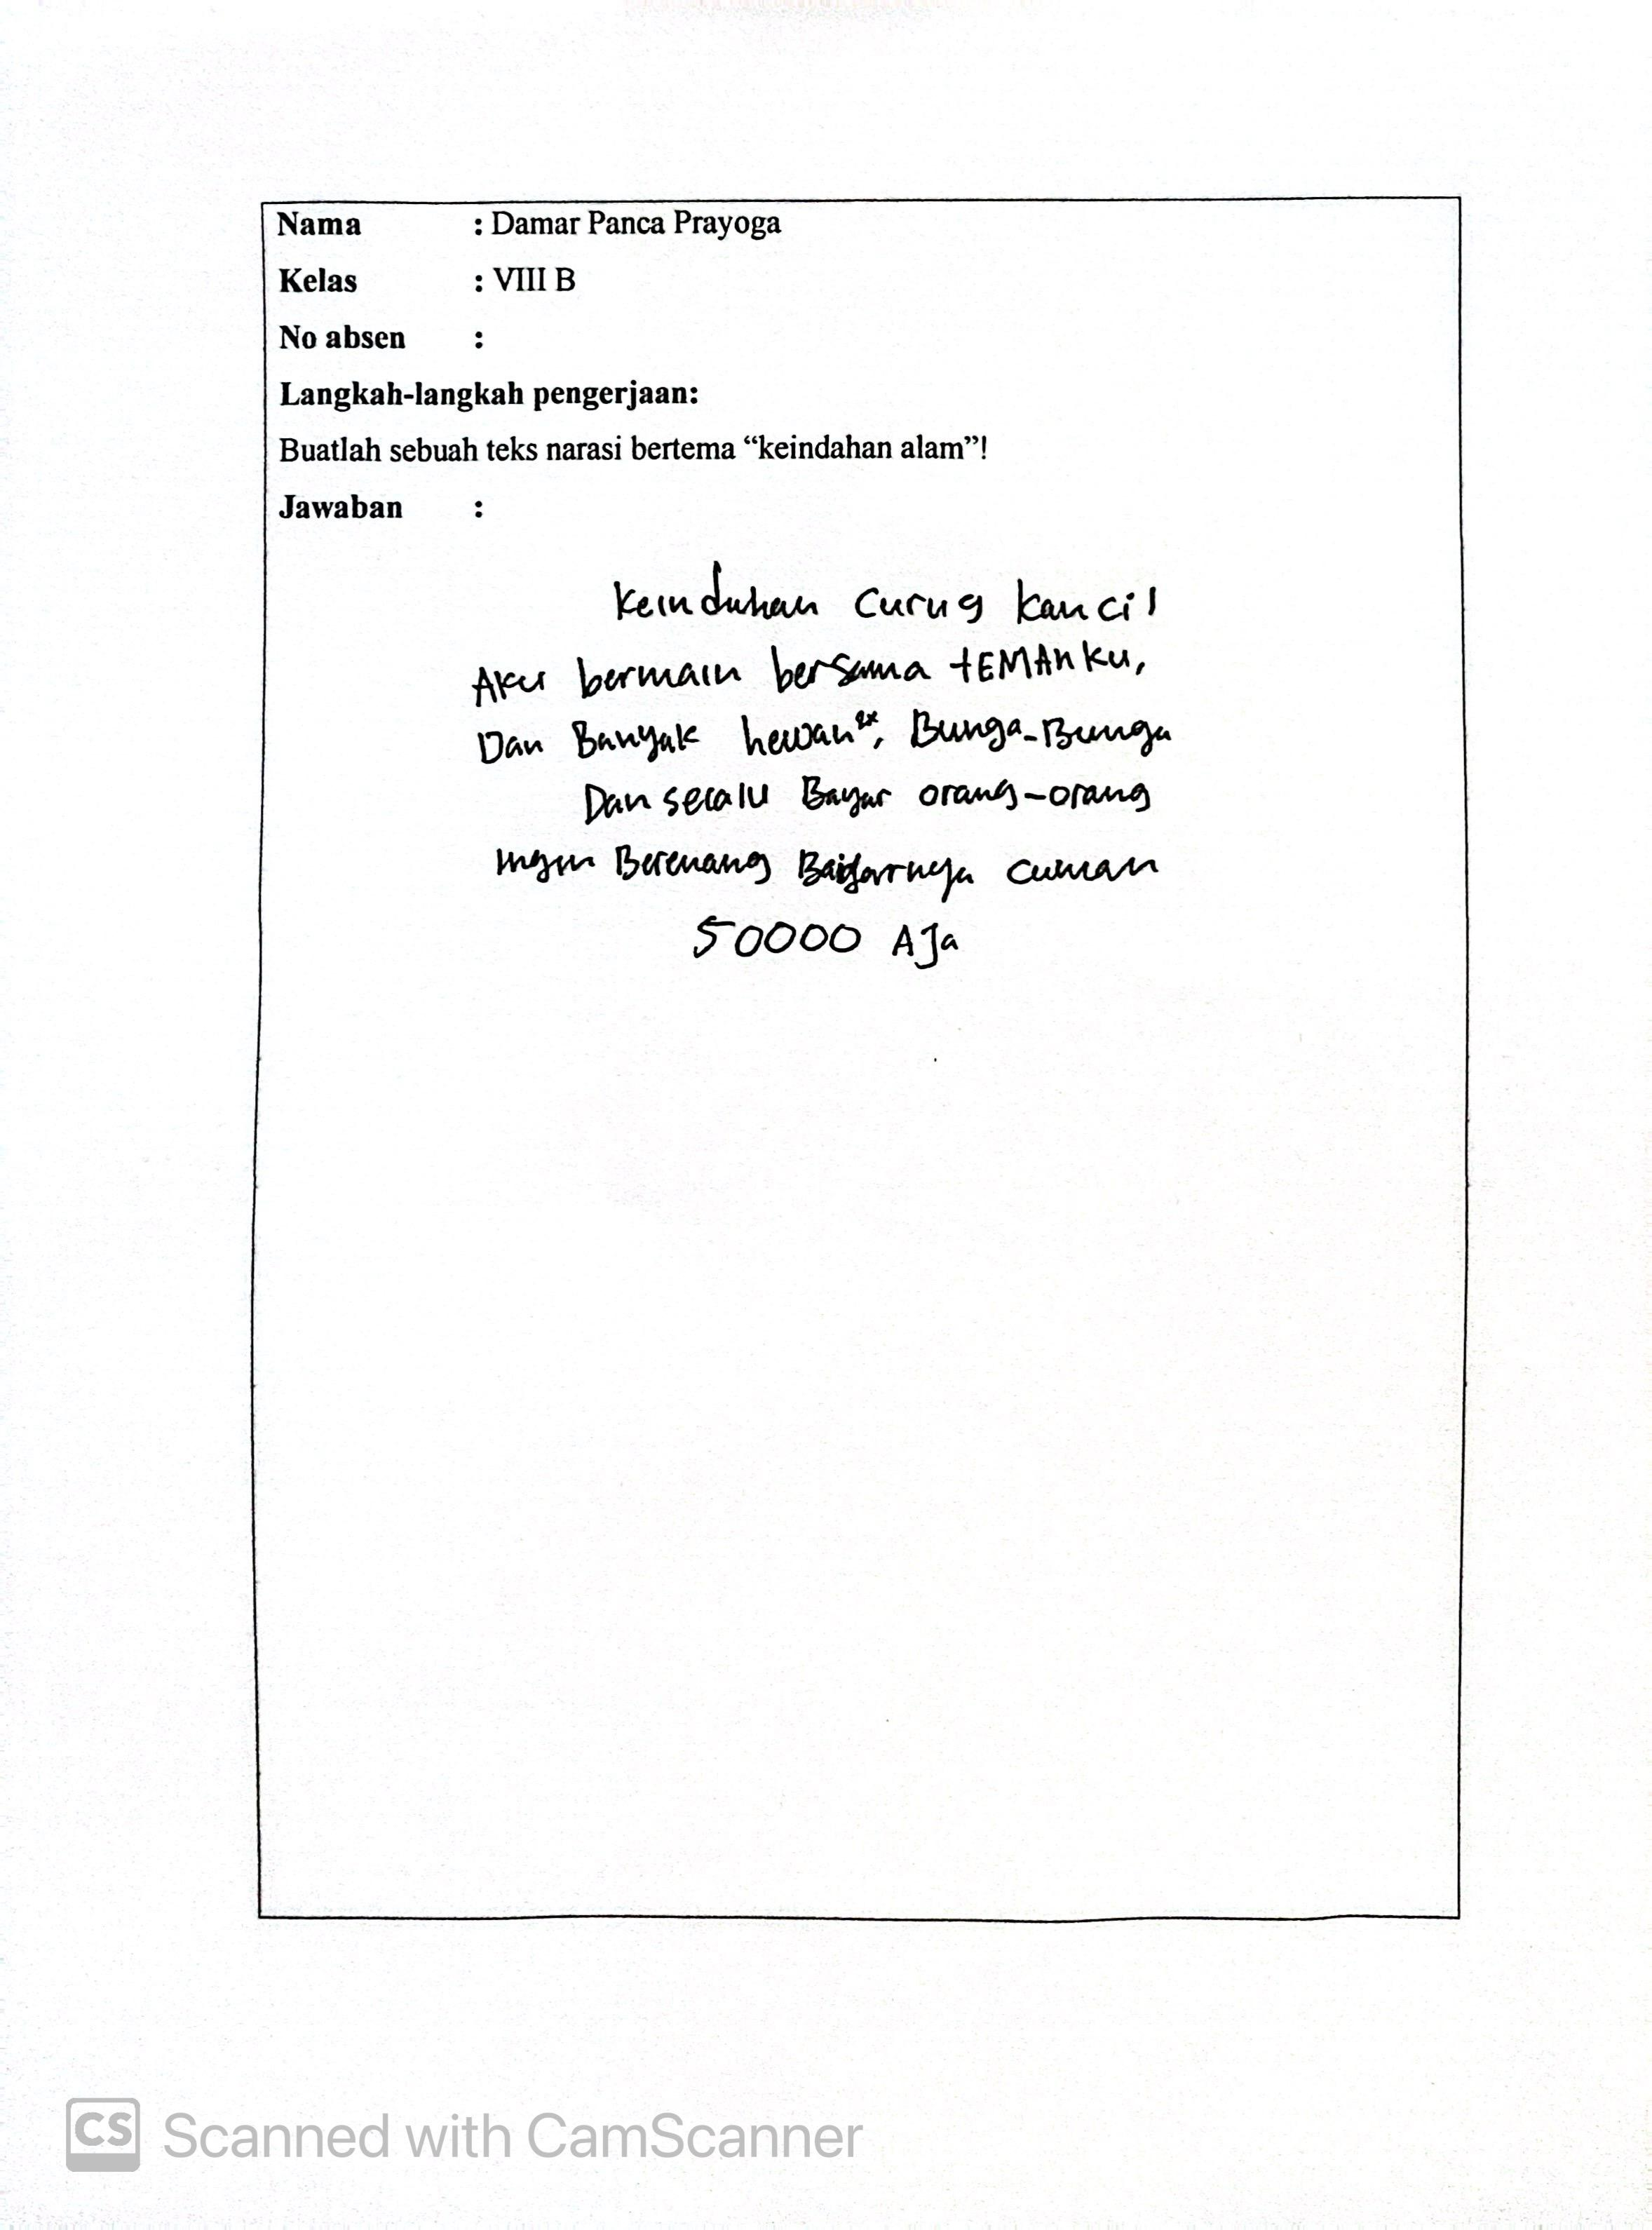 Nama : Damar Panca Prayoga
Kelas : VIII B
No absen :
Langkah-langkah pengerjaan:
Buatlah sebuah teks narasi bertema “keindahan alam”!
Jawaban :
Keinduhan Curug kancil
Aku bermain bersama tEMAnku,
Dan Banyak hewan²ˣ, Bunga-Bunga
Dan selalu Bayar orang-orang
ingin Berenang Baiyarnya cuman
50000 AJa
CS Scanned with CamScanner